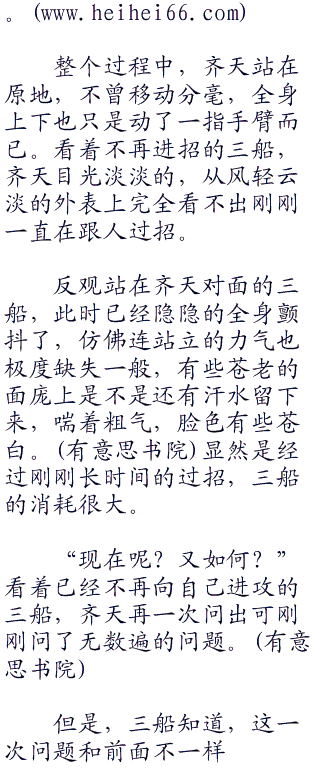 。(www.heihei66.com)
整个过程中，齐天站在
原地，不曾移动分毫，全身
上下也只是动了一指手臂而
已。看着不再进招的三船，
齐天目光淡淡的，从风轻云
淡的外表上完全看不出刚刚
一直在跟人过招。
反观站在齐天对面的三
船，此时已经隐隐的全身颤
抖了，仿佛连站立的力气也
极度缺失一般，有些苍老的
面庞上是不是还有汗水留下
来，喘着粗气，脸色有些苍
白。(有意思书院)显然是经
过刚刚长时间的过招，三船
的消耗很大。
“现在呢？又如何？”
看着已经不再向自己进攻的
三船，齐天再一次问出可刚
刚问了无数遍的问题。(有意
思书院)
但是，三船知道，这一
次问题和前面不一样